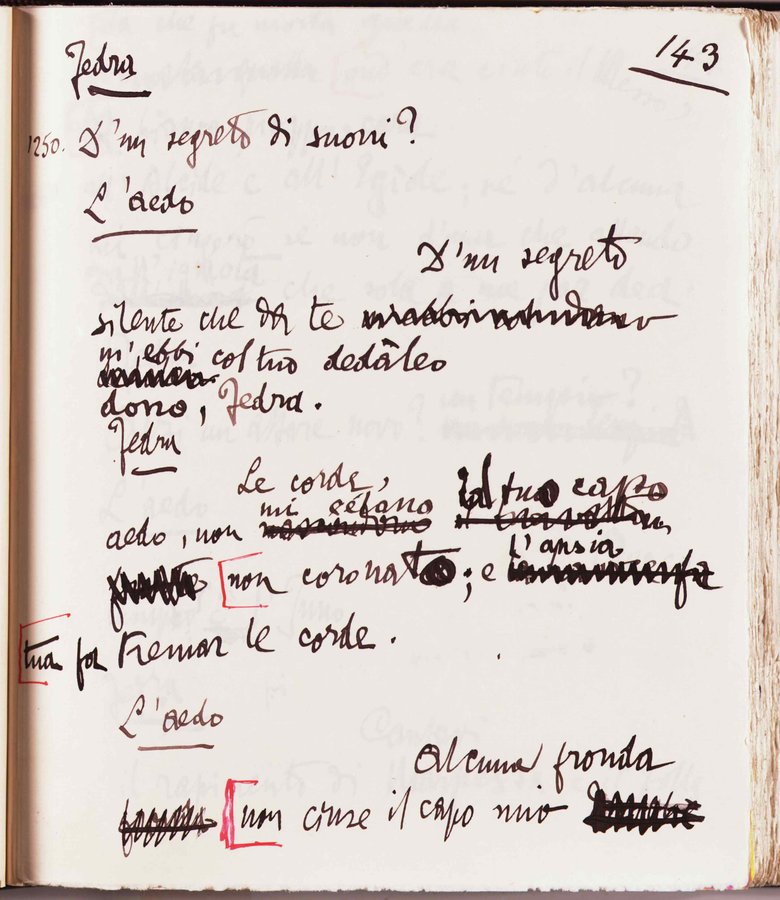 143
Fedra
1250. D'un segreto di suoni?
L'aedo
D'un segreto
silente che da te
m'ebbi col tuo dedàleo
dono, Fedra.
Fedra
Le corde,
mi celano il tuo capo
aedo, non
l'ansia
non coronato; e
tua fa tremar le corde.
L'aedo
alcuna fronda
non cinse il capo mio